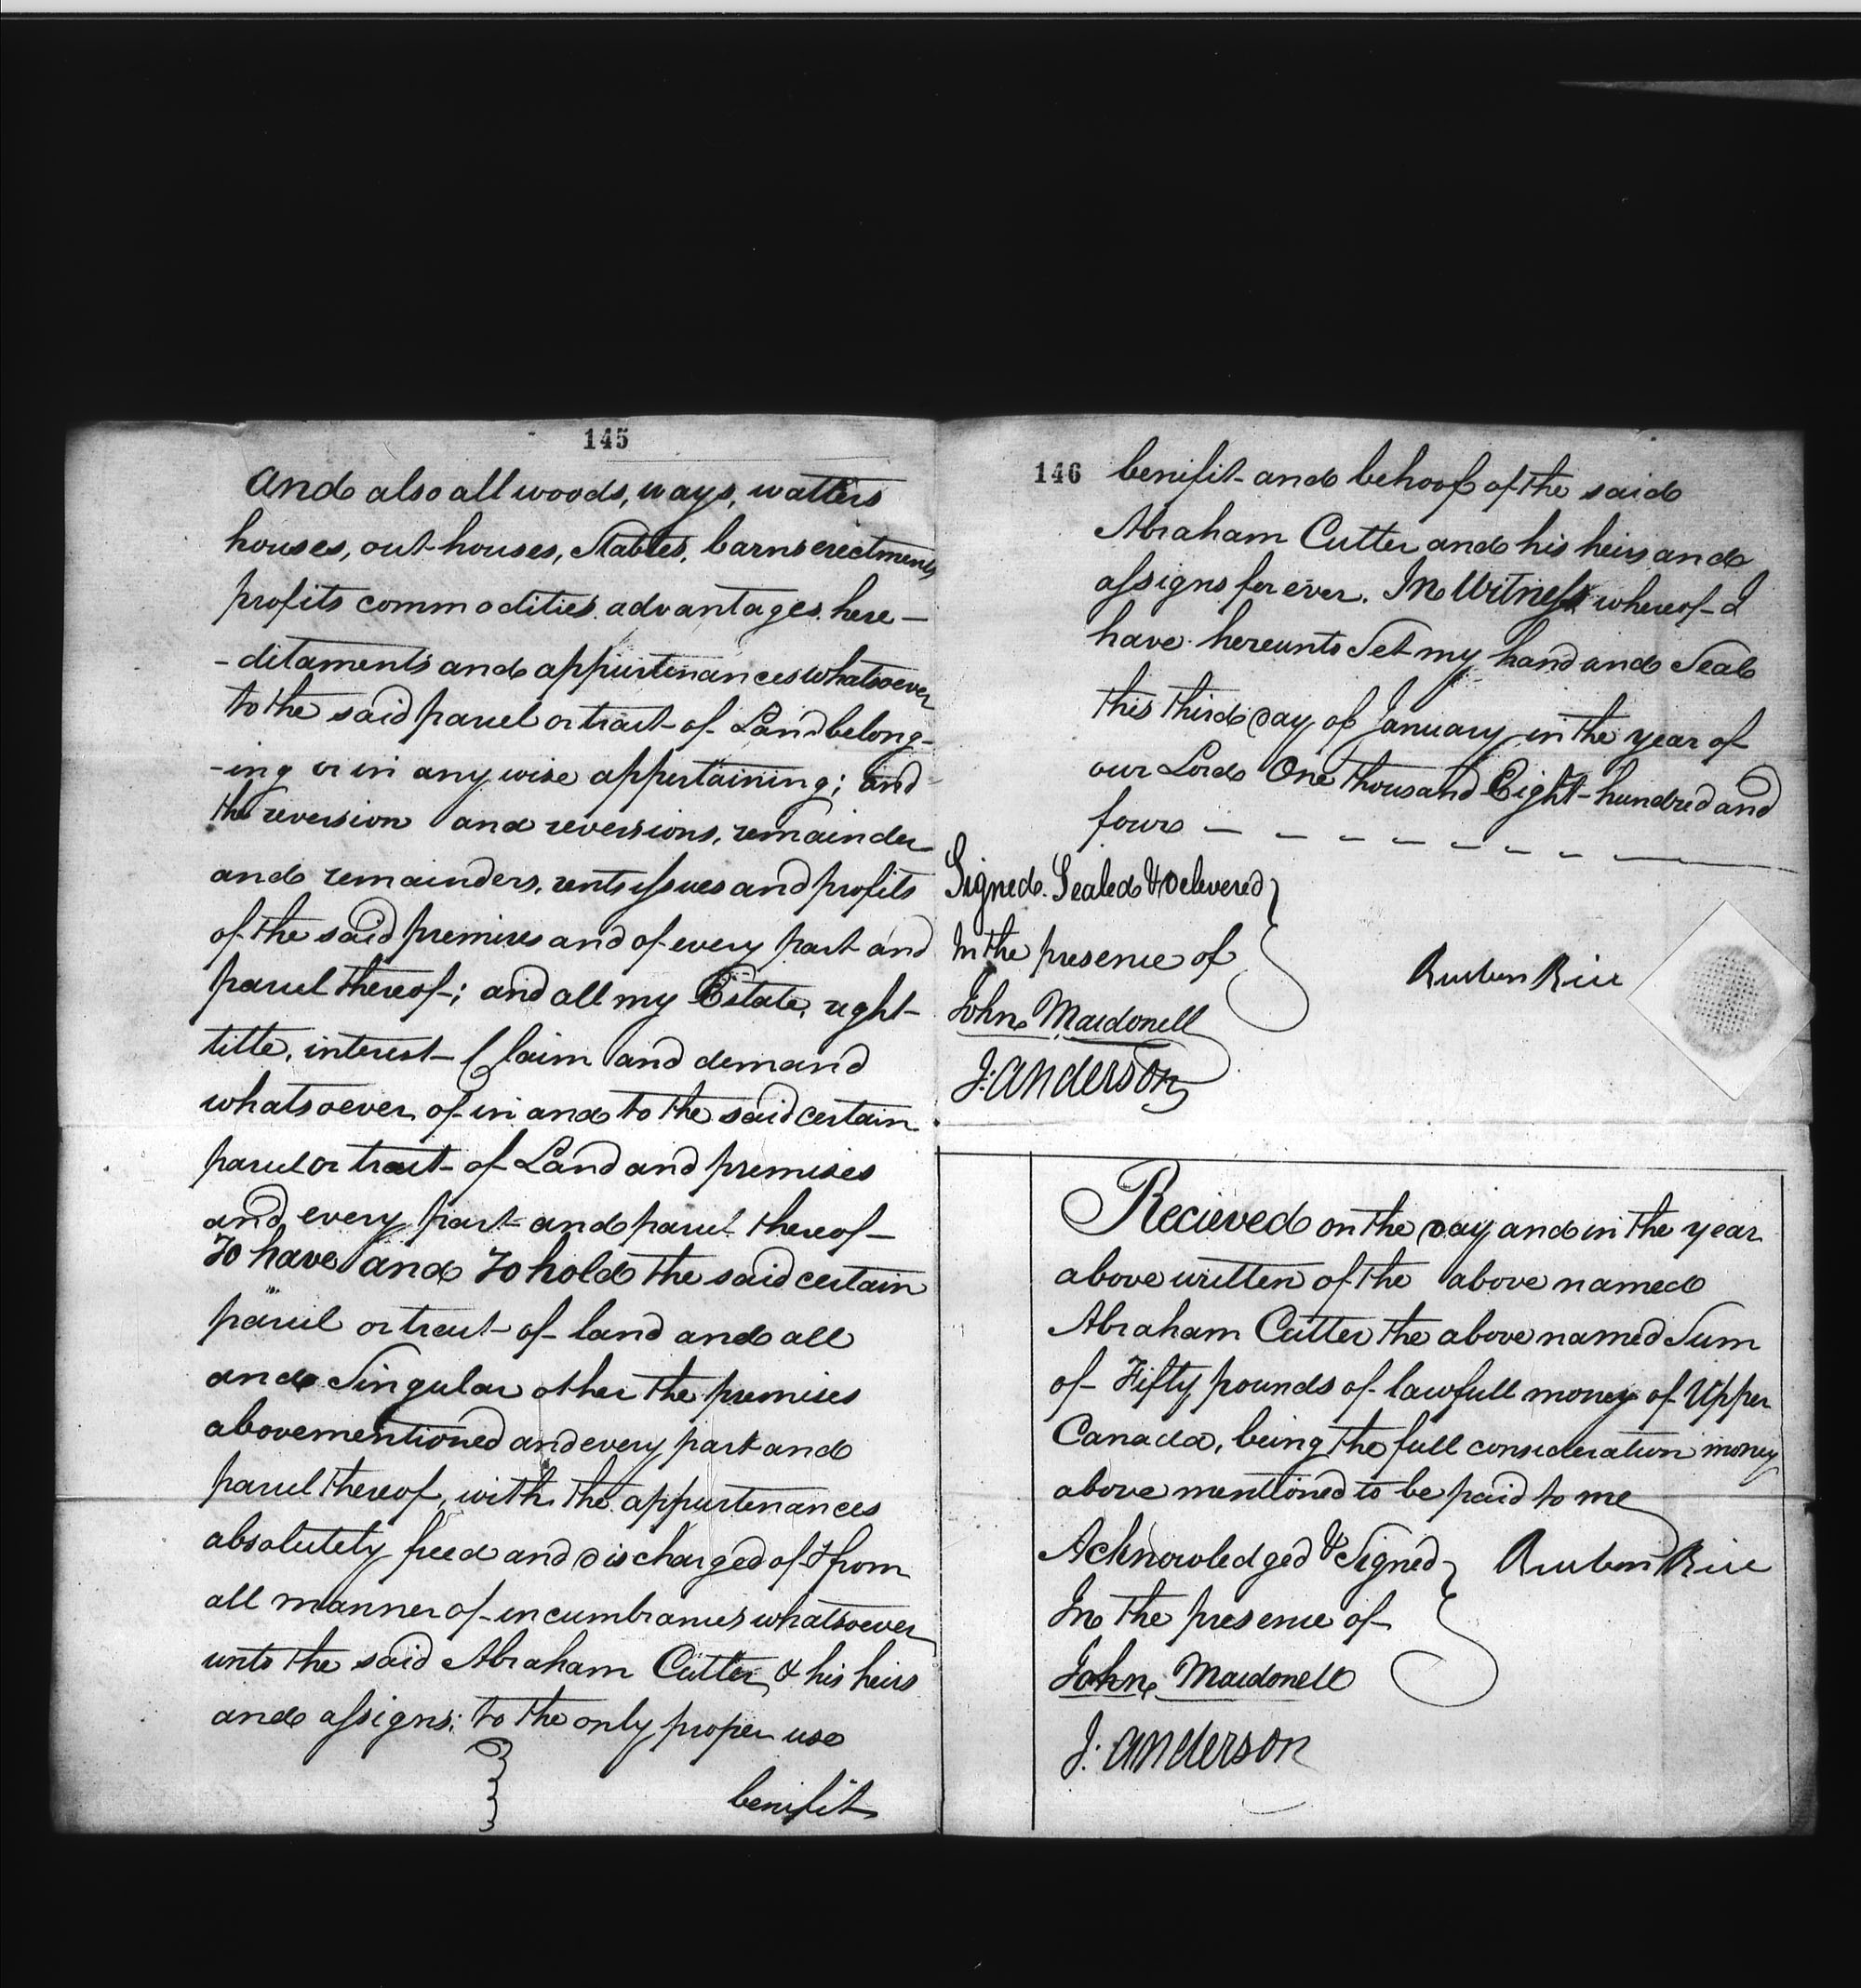 145
And also all woods, ways, watters
houses, out-houses, Stables, barns erectments
profits commodities advantages here-
-ditaments and appurtenances whatsoever
to the said parcel or tract of Land belong-
-ing or in any wise appertaining; and
the reversion and reversions, remainder
and remainders, rents issues and profits
of the said premises and of every part and
parcel thereof; and all my Estate, right
title, interest Claim and demand
whatsoever of in and to the said certain
parcel or tract of Land and premises
and every part and parcel thereof
To have and To hold the said certain
parcel or tract of land and all
and Singular other the premises
abovementioned and every part and
parcel thereof, with the appurtenances
absolutely freed and discharged of & from
all manner of incumbrances whatsoever
unto the said Abraham Cutter & his heirs
and assigns; to the only proper use
benifit
146
benifit and behoof of the said
Abraham Cutter and his heirs and
assigns for ever. In Witness whereof I
have hereunto Set my hand and Seal
this third day of January in the year of
our Lord One thousand Eight hundred and
four
Signed. Sealed & Delevered
In the presence of
Reuben Rice
John Macdonell
J: Anderson
Recieved on the day and in the year
above written of the above named
Abraham Cutter the above named Sum
of Fifty pounds of lawfull money of Upper
Canada, being the full consideration money
above mentioned to be paid to me
Acknowledged & Signed Reuben Rice
In the presence of
John Macdonell
J: Anderson